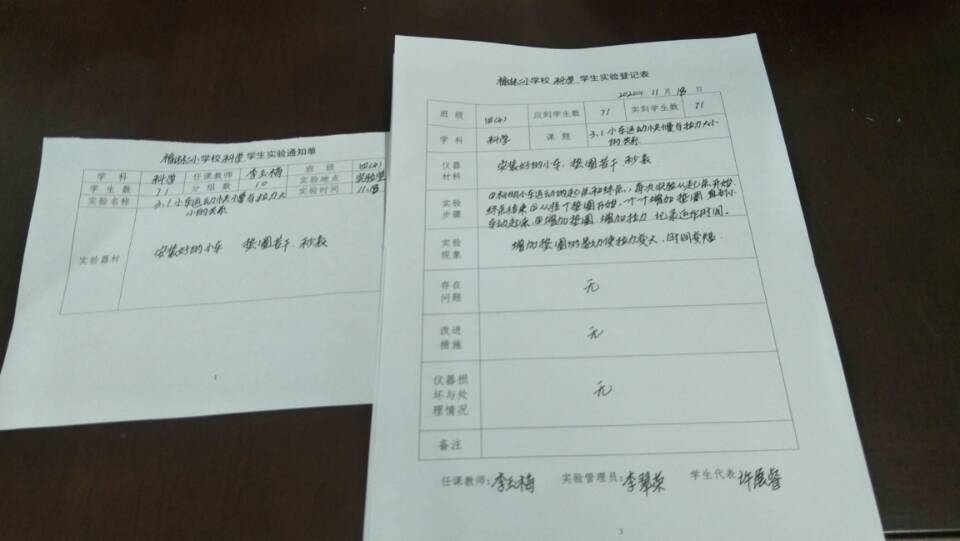 小学校 科学 学生实验通知单
学科 科学 任课教师 李玉梅 班级 四(4)
学生数 71 分组数 10 实验地点 实验室
实验名称 3.1小车运动快慢与拉力大 实验时间 11.18
小的关系
实验器材 安装好的小车 垫圈若干、秒表
1
小学校 科学 学生实验登记表
2020年 11月 18日
班级 四(4) 应到学生数 71 实到学生数 71
学科 科学 课题 3.1小车运动快慢与拉力大小
的关系
仪器
材料 安装好的小车、垫圈若干、秒表
实验
步骤 小车运动的起点和终点,每次试验从起点开始,
终点结束②从 个垫圈开始,一个个增加 垫圈 直到小
车动起来,③增加垫圈 增加拉力 记录运动时间。
实验
现象 增加垫圈的 使拉力变大、时间变短
存在
问题 无
改进
措施 无
仪器损
坏与处
理情况 无
备注
任课教师:李玉梅 实验管理员:李翠荣 学生代表:许
3